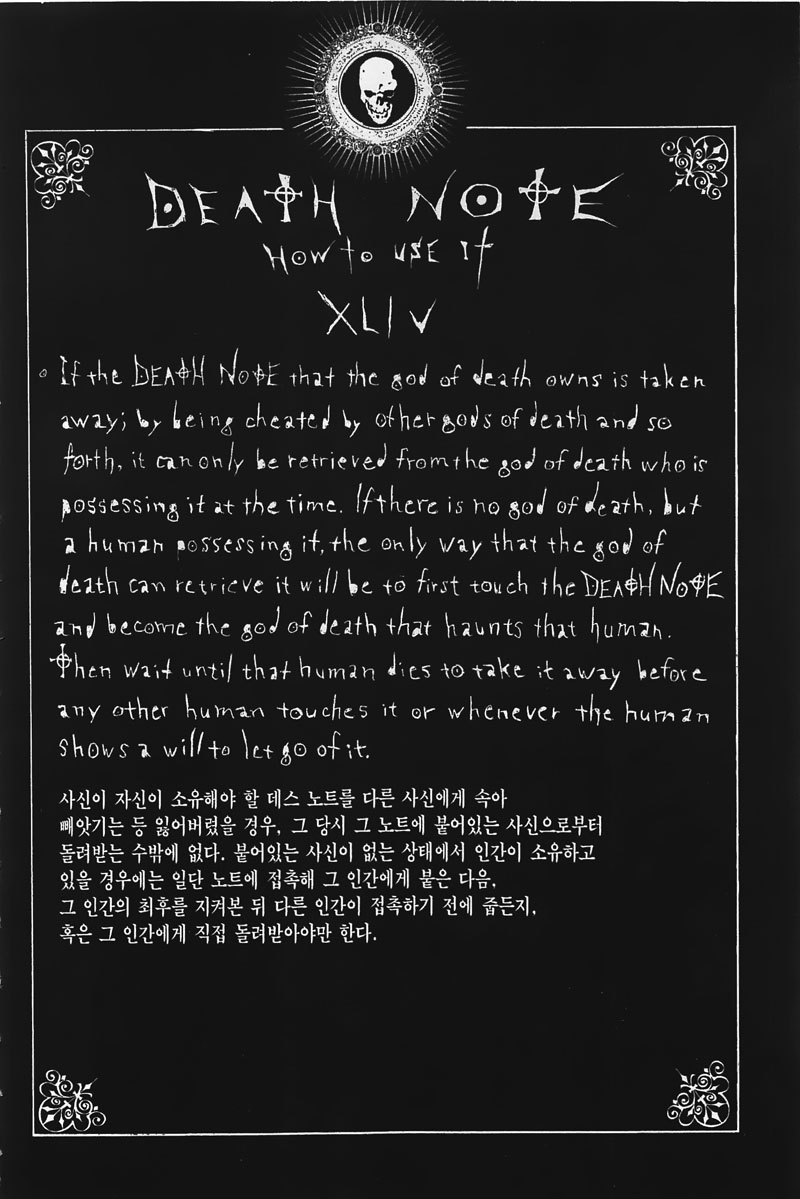 DEATH NOTE
HOW to USE It
XLIV
◦ If the DEATH NOTE that the god of death owns is taken
away; by being cheated by other gods of death and so
forth, it can only be retrieved from the god of death who is
possessing it at the time. If there is no god of death, but
a human possessing it, the only way that the god of
death can retrieve it will be to first touch the DEATH NOTE
and become the god of death that haunts that human.
Then wait until that human dies to take it away before
any other human touches it or whenever the human
shows a will to let go of it.
사신이 자신이 소유해야 할 데스 노트를 다른 사신에게 속아
빼앗기는 등 잃어버렸을 경우, 그 당시 그 노트에 붙어있는 사신으로부터
돌려받는 수밖에 없다. 붙어있는 사신이 없는 상태에서 인간이 소유하고
있을 경우에는 일단 노트에 접촉해 그 인간에게 붙은 다음,
그 인간의 최후를 지켜본 뒤 다른 인간이 접촉하기 전에 줍든지,
혹은 그 인간에게 직접 돌려받아야만 한다.